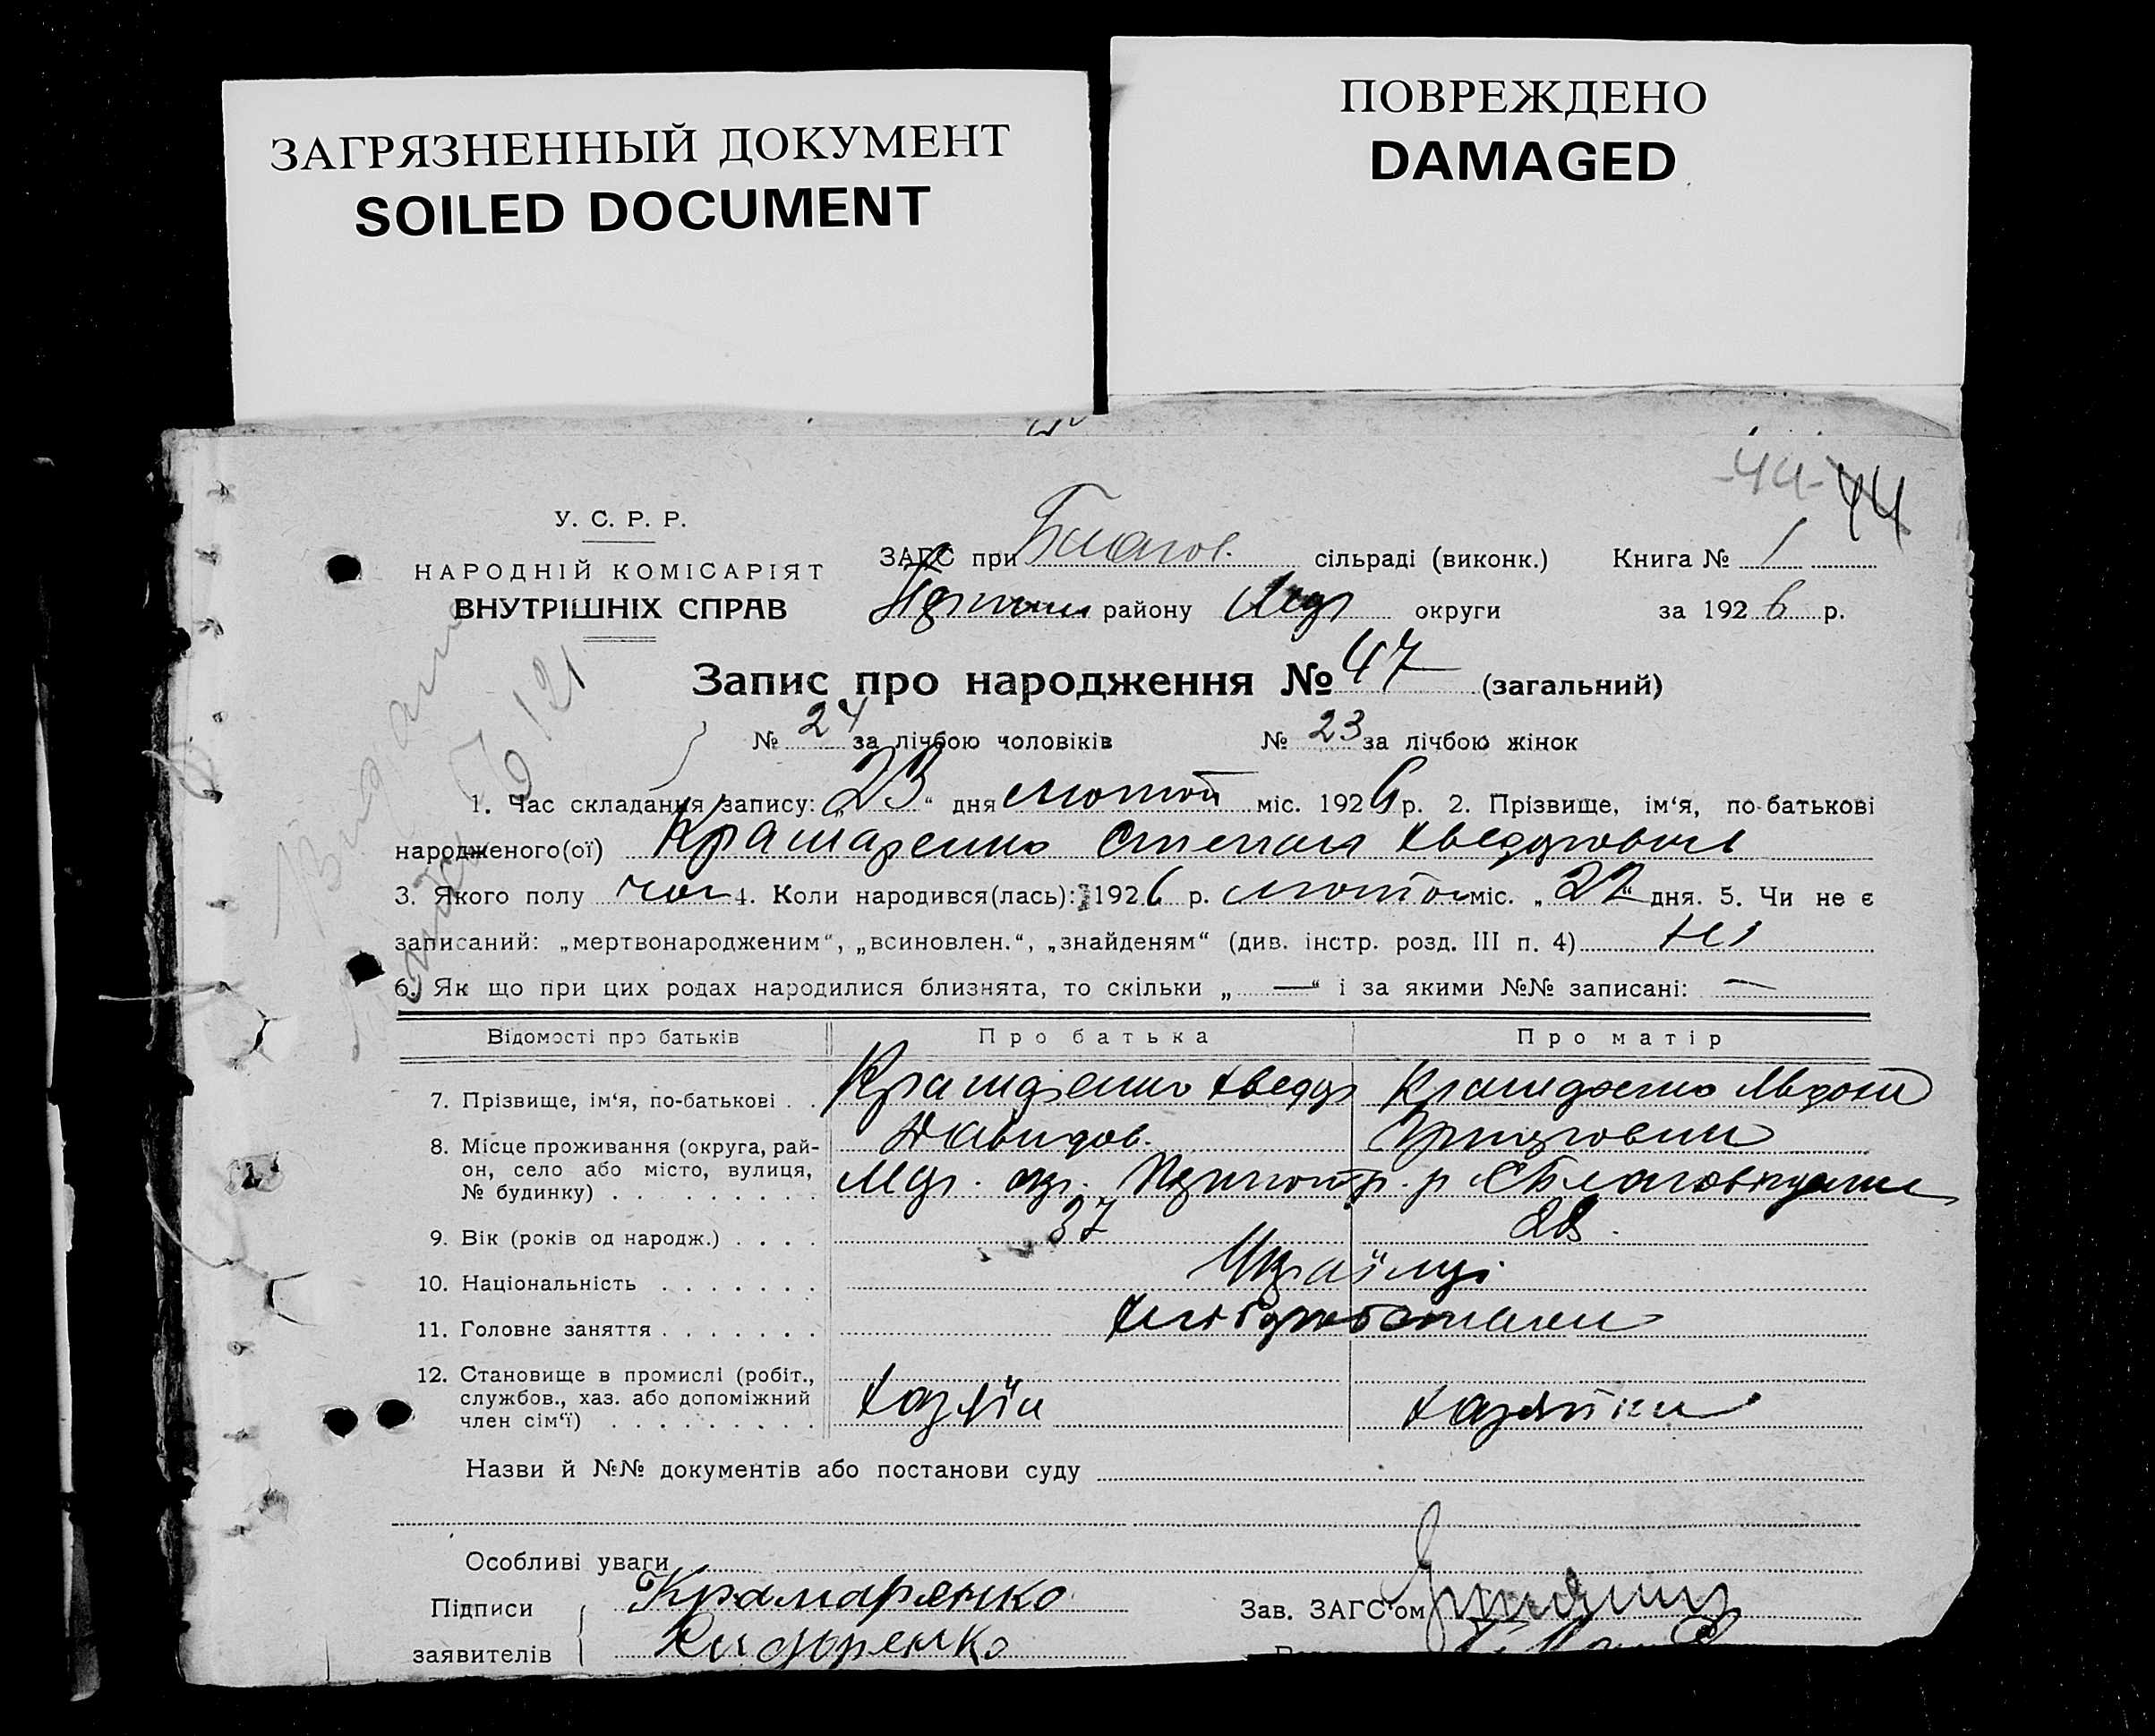 ЗАГРЯЗНЕННЫЙ ДОКУМЕНТ
SOILED DOCUMENT
ПОВРЕЖДЕНО
DAMAGED
-44- 44
У. С. Р. Р.
НАРОДНІЙ КОМІСАРІЯТ
ВНУТРІШНІХ СПРАВ
ЗАГС при Благов. сільраді (виконк.) Книга № 1
району Мдр округи за 1926 р.
Запис про народження № 47 (загальний)
№ 24 за лічбою чоловіків № 23 за лічбою жінок
1. Час складання запису: „23“ дня лютого міс. 1926 р. 2. Прізвище, ім‘я, по-батькові
народженого(ої) Крамаренко Степан Хведорович
3. Якого полу чол 4. Коли народився(лась): 1926 р. лютого міс. „22“ дня. 5. Чи не є
записаний: „мертвонародженим“, „всиновлен.“, „знайденям“ (див. інстр. розд. III п. 4) Ні
6. Як що при цих родах народилися близнята, то скільки „—“ і за якими №№ записані: —
Відомості про батьків Про батька Про матір
7. Прізвище, ім‘я, по-батькові . . Крамаренко Хведір Крамаренко
Давидов.
8. Місце проживання (округа, рай-
он, село або місто, вулиця,
№ будинку) . . . . . . . . . Мдр. окр.
9. Вік (років од народж.) . . . . 37 28.
10. Національність . . . . . . . Українці
11. Головне заняття . . . . . . . Хліборобство
12. Становище в промислі (робіт.,
службов., хаз. або допоміжний
член сім‘ї) . . . . . . . . . Хазяїн Хазяйка
Назви й №№ документів або постанови суду
Особливі уваги
Підписи Крамаренко Зав. ЗАГС‘ом
заявителів